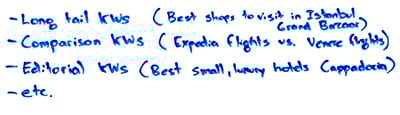 - Long tail KWs (Best shops to visit in Istanbul
Grand Bazaar)
- Comparison KWs (Expedia flights vs. Venere flights)
- Editorial KWs (Best small, luxury hotels Cappadocia)
- etc.